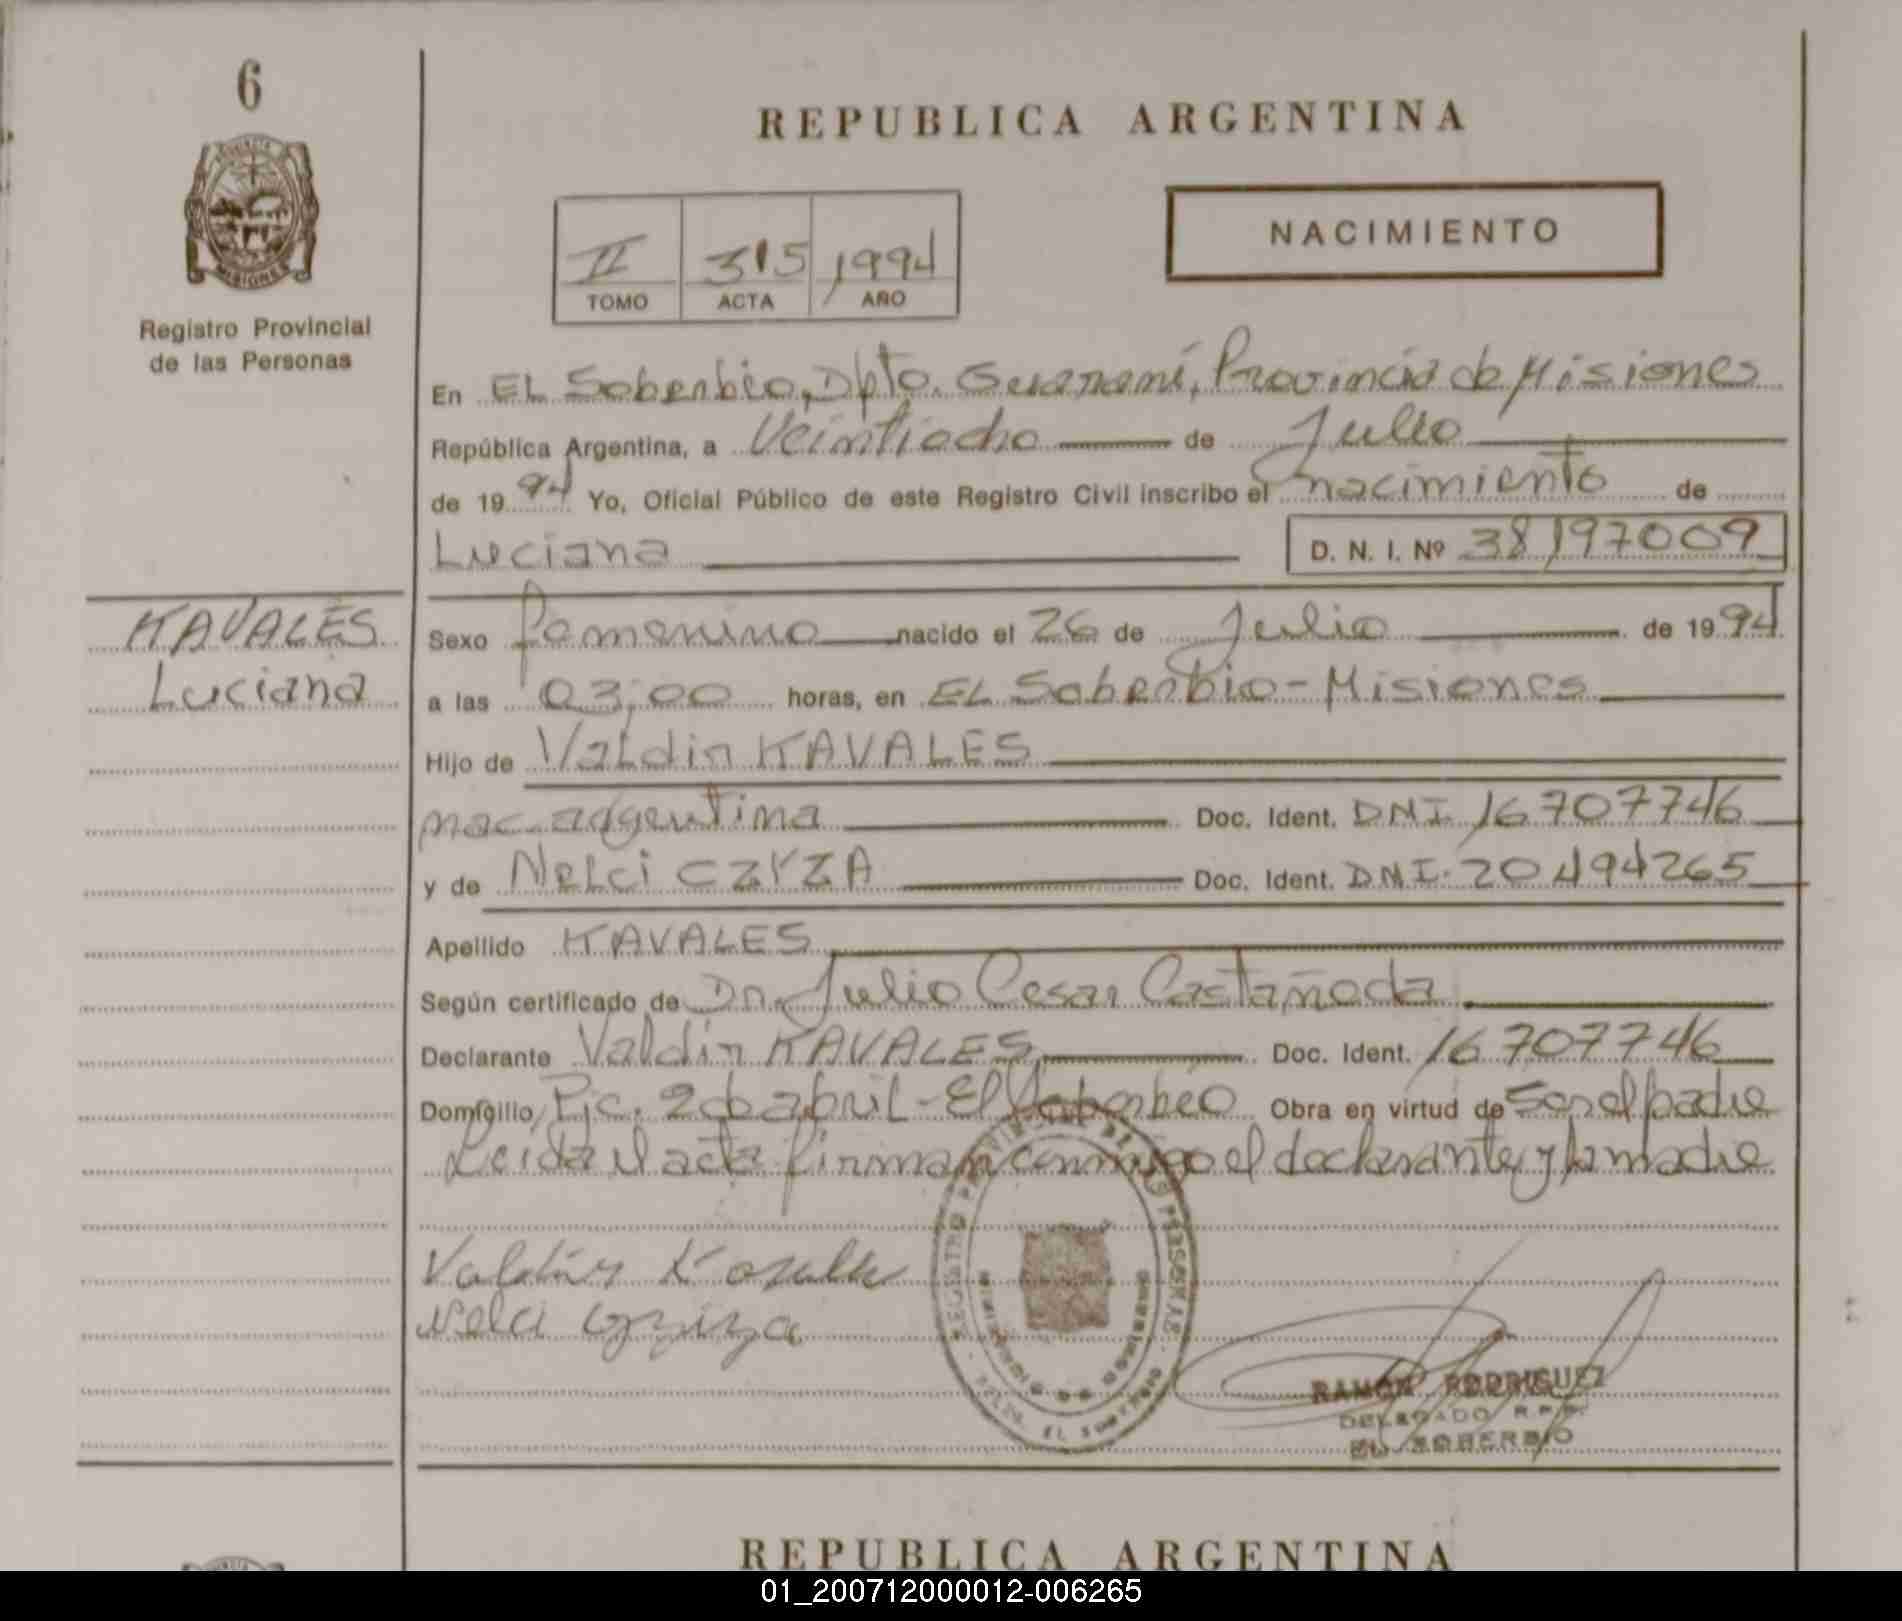 6
REPUBLICA ARGENTINA
NACIMIENTO
II 315 1994
TOMO ACTA AÑO
PROVINCIA
MISIONES
Registro Provincial
de las Personas
En EL Soberbio, Dpto. Guaraní, Provincia de Misiones
República Argentina, a Veintiocho de Julio
de 1994 Yo, Oficial Público de este Registro Civil inscribo el nacimiento de
Luciana D. N. I. Nº 38197009
KAVALES
Luciana
Sexo femenino nacido el 26 de Julio de 1994
a las 03,00 horas, en EL Soberbio - Misiones
Hijo de Valdir KAVALES
nac. argentina Doc. Ident. DNI 16707746
y de Nelci CZYZA Doc. Ident. DNI. 20494265
Apellido KAVALES
Según certificado de Dr. Julio Cesar Castañeda
Declarante Valdir KAVALES Doc. Ident. 16707746
Domicilio Pje. 2 de abril - El Soberbio Obra en virtud de Ser el padre
Leida el acta firman conmigo el declarante y la madre
Valdir
Nelci
REGISTRO PROVINCIAL DE LAS PERSONAS
MINISTERIO DE GOBIERNO
EL SOBERBIO
RAMON RODRIGUEZ
DELEGADO R.P.P.
EL SOBERBIO
REPUBLICA ARGENTINA
01_200712000012-006265